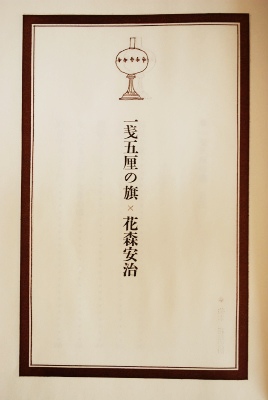 一戔五厘の旗×花森安治